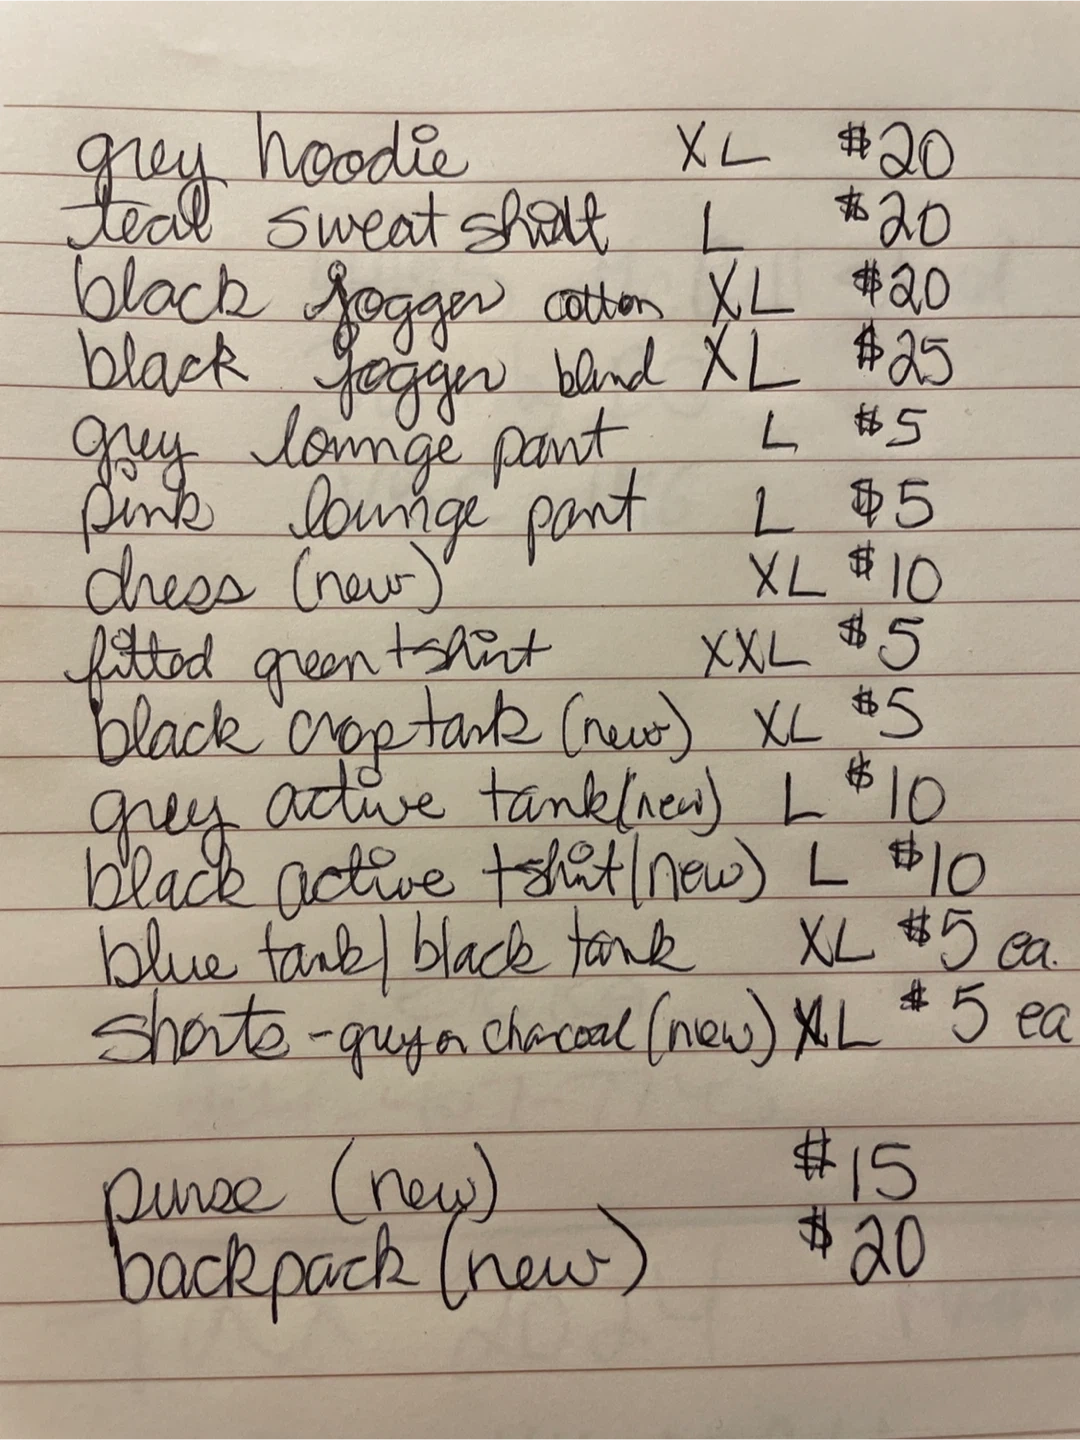 grey hoodie XL $20
teal sweatshirt L $20
black jogger cotton XL $20
black jogger blend XL $25
grey lounge pant L $5
pink lounge pant L $5
dress (new) XL $10
fitted green t-shirt XXL $5
black crop tank (new) XL $5
grey active tank (new) L $10
black active tshirt (new) L $10
blue tank/black tank XL $5 ea.
shorts - grey or charcoal (new) XL $5 ea
purse (new) $15
backpack (new) $20